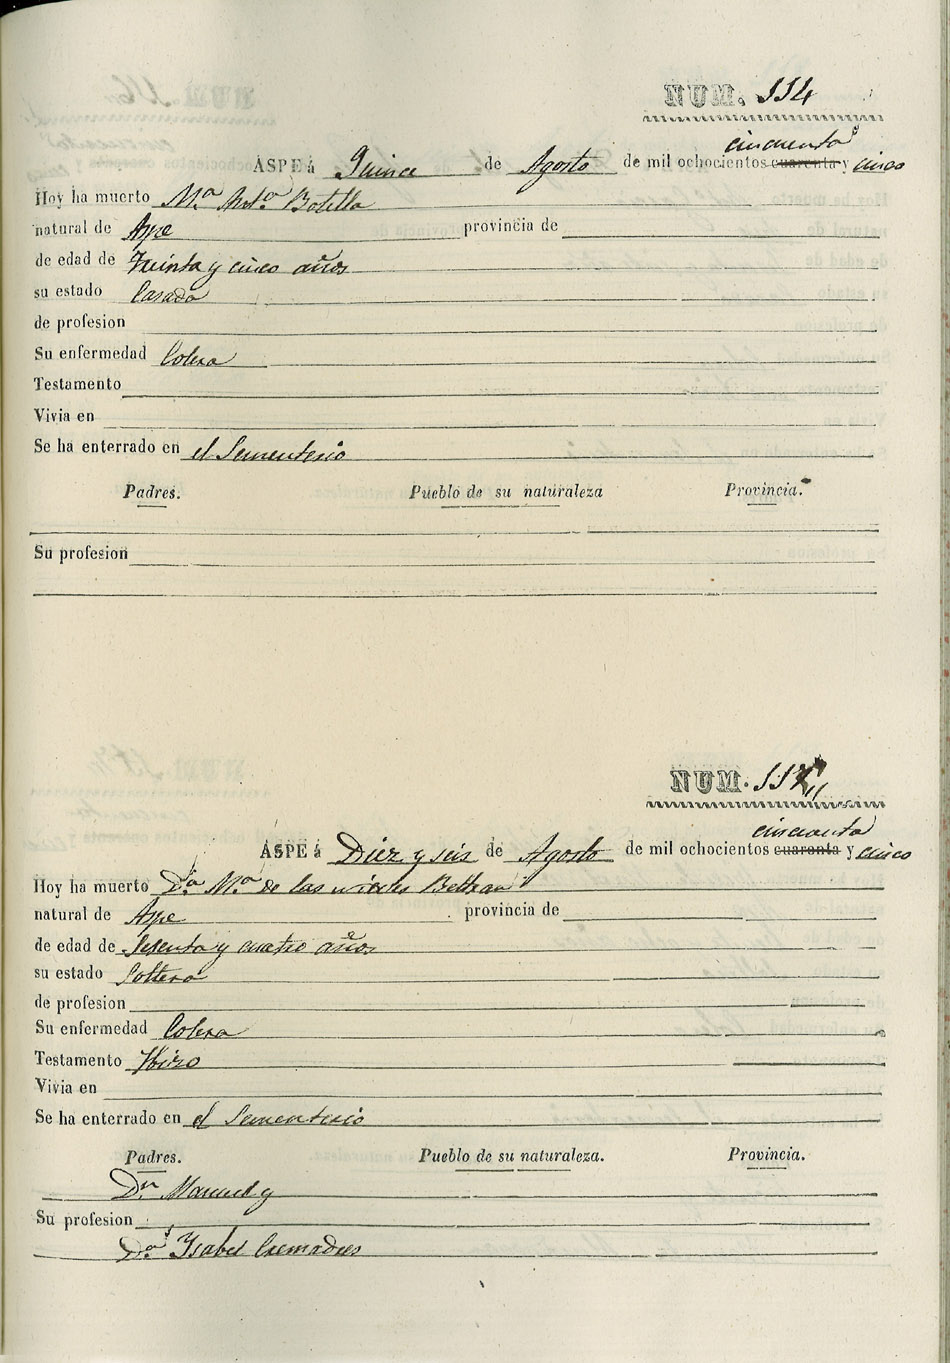 NUM. 114
cincuenta
ASPE á Quince de Agosto de mil ochocientos cuarenta y cinco
Hoy ha muerto Mª Antª Botella
natural de Aspe provincia de
de edad de Treinta y cinco años
su estado Casada
de profesion
Su enfermedad Colera
Testamento
Vivia en
Se ha enterrado en el Sementerio
Padres. Pueblo de su naturaleza Provincia.
Su profesion
NUM.
cincuenta
ASPE á Diez y seis de Agosto de mil ochocientos cuarenta y cinco
Hoy ha muerto Dª Mª de las nieves Beltran
natural de Aspe provincia de
de edad de Sesenta y cuatro años
su estado Soltera
de profesion
Su enfermedad Colera
Testamento Hizo
Vivia en
Se ha enterrado en el Sementerio
Padres. Pueblo de su naturaleza. Provincia.
Dn Manuel y
Su profesion
Dª Ysabel Cremades